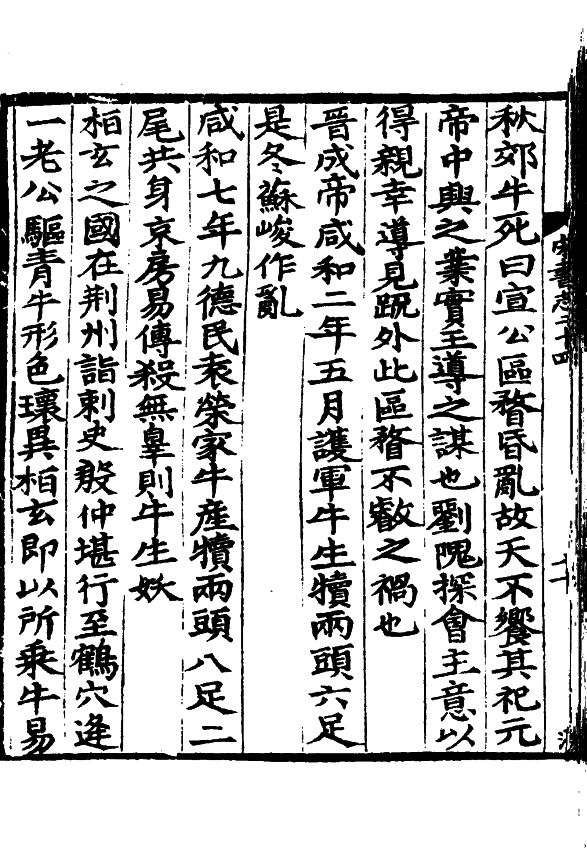 秋郊牛死曰宣公區瞀昏亂故天不饗其祀元
帝中興之業實王導之謀也劉隗探會主意以
得親幸導見踈外此區瞀不叡之禍也
晉成帝咸和二年五月護軍牛生犢兩頭六足
是冬蘇峻作亂
咸和七年九德民袁榮家牛産犢兩頭八足二
尾共身京房易傳殺無辠則牛生妖
桓玄之國在荆州詣刺史殷仲堪行至鶴穴逢
一老公驅青牛形色瓌異桓玄即以所乘牛易
宋書志二十四